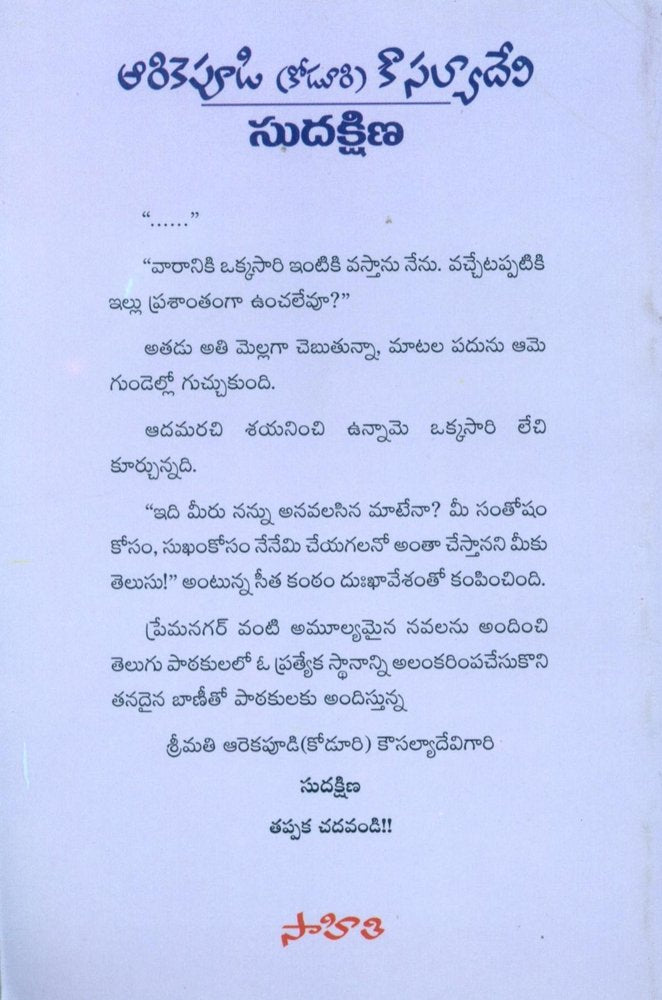 ఆరికెపూడి (కోడూరి) కౌసల్యాదేవి
సుదక్షిణ
“......”
“వారానికి ఒక్కసారి ఇంటికి వస్తాను నేను. వచ్చేటప్పటికి
ఇల్లు ప్రశాంతంగా ఉంచలేవూ?”
అతడు అతి మెల్లగా చెబుతున్నా, మాటల పదును ఆమె
గుండెల్లో గుచ్చుకుంది.
ఆదమరచి శయనించి ఉన్నామె ఒక్కసారి లేచి
కూర్చున్నది.
“ఇది మీరు నన్ను అనవలసిన మాటేనా? మీ సంతోషం
కోసం, సుఖంకోసం నేనేమి చేయగలనో అంతా చేస్తానని మీకు
తెలుసు!” అంటున్న సీత కంఠం దుఃఖావేశంతో కంపించింది.
ప్రేమనగర్ వంటి అమూల్యమైన నవలను అందించి
తెలుగు పాఠకులలో ఓ ప్రత్యేక స్థానాన్ని అలంకరింపచేసుకొని
తనదైన బాణీతో పాఠకులకు అందిస్తున్న
శ్రీమతి ఆరెకపూడి(కోడూరి) కౌసల్యాదేవిగారి
సుదక్షిణ
తప్పక చదవండి!!
సాహితి